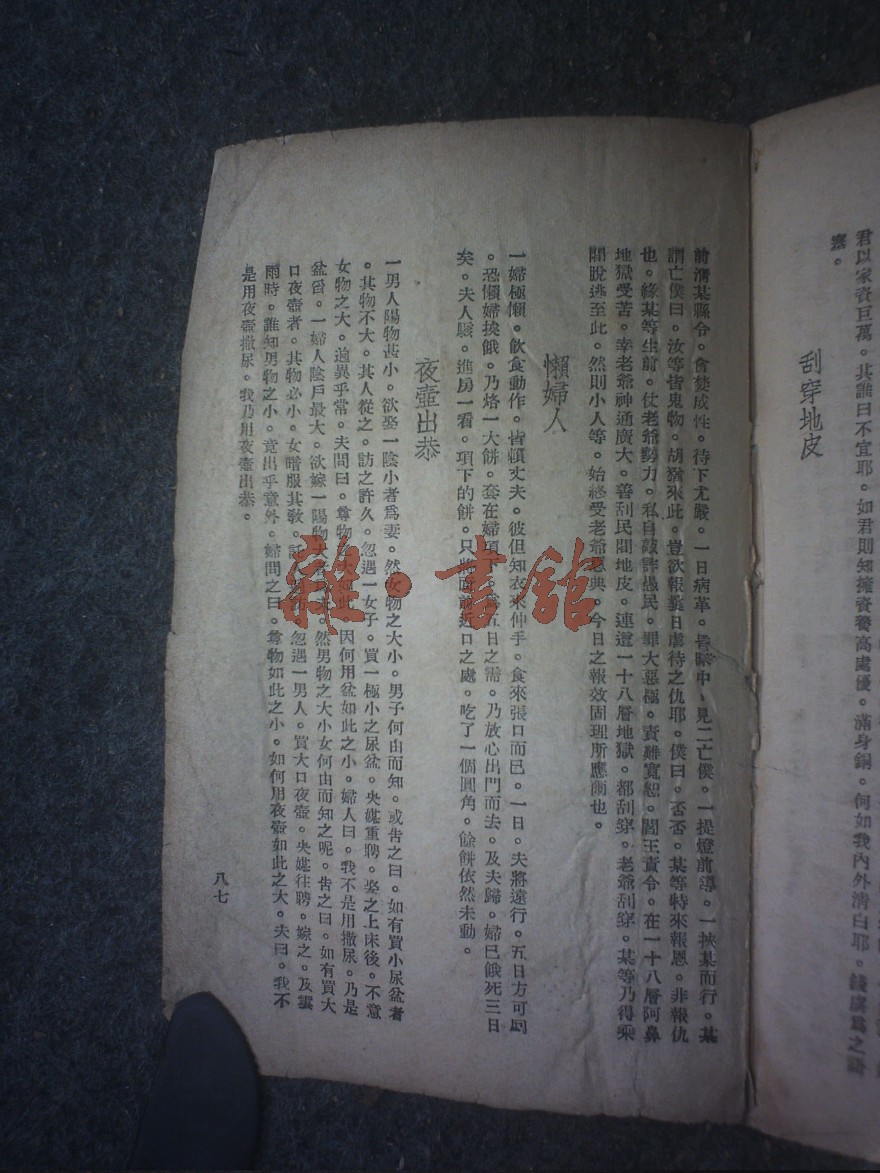 君以家資巨萬。其誰曰不宜耶。如君則知擁資養高處優。滿身銅。何如我內外清白耶。錢虜爲之語
塞。
刮穿地皮
前清某縣令。貪婪成性。待下尤嚴。一日病革。昏瞀中。見二亡僕。一提燈前導。一挾某而行。某
謂亡僕曰。汝等皆鬼物。胡猶來此。豈欲報曩日虐待之仇耶。僕曰。否否。某等特來報恩。非報仇
也。緣某等生前。仗老爺勢力。私自敲詐愚民。罪大惡極。責雖寬恕。閻王責令。在一十八層阿鼻
地獄受苦。幸老爺神通廣大。善刮民間地皮。連這一十八層地獄。都刮穿。老爺刮穿。某等乃得乘
間脫逃至此。然則小人等。始終受老爺恩典。今日之報效固理所應爾也。
懶婦人
一婦極懶。飲食動作。皆賴丈夫。彼但知衣來伸手。食來張口而已。一日。夫將遠行。五日方可回
。恐懶婦挨餓。乃烙一大餅。套在婦項下。爲五日之需。乃放心出門而去。及夫歸。婦已餓死三日
矣。夫人駭。進房一看。項下的餅。只將面前近口之處。吃了一個圓角。餘餅依然未動。
夜壺出恭
一男人陽物甚小。欲娶一陰小者爲妻。然女物之大小。男子何由而知。或告之曰。如有買小尿盆者
。其物不大。其人從之。訪之許久。忽遇一女子。買一極小之尿盆。央媒重聘。娶之上床後。不意
女物之大。迥異乎常。夫問曰。尊物之大如此。因何用盆如此之小。婦人曰。我不是用撒尿。乃是
盆舀。一婦人陰戶最大。欲嫁一陽物大 然男物之大小女何由而知之呢。告之曰。如有買大
口夜壺者。其物必小。女暗服其教。託 忽遇一男人。買大口夜壺。央媒往聘。嫁之。及雲
雨時。誰知男物之小。竟出乎意外。婦問之曰。尊物如此之小。如何用夜壺如此之大。夫曰。我不
是用夜壺撒尿。我乃用夜壺出恭。
八七
雜·書館